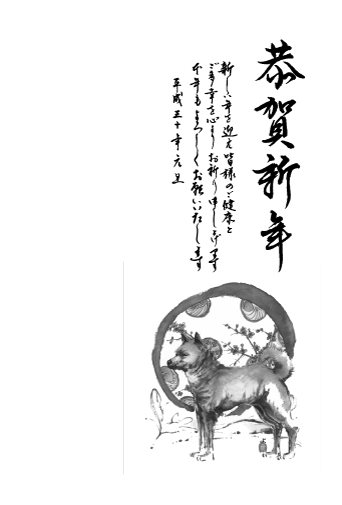 恭賀新年
新しい年を迎え皆様のご健康と
ご多幸を心よりお祈り申し上げます
本年もよろしくお願いいたします
平成三十年元旦